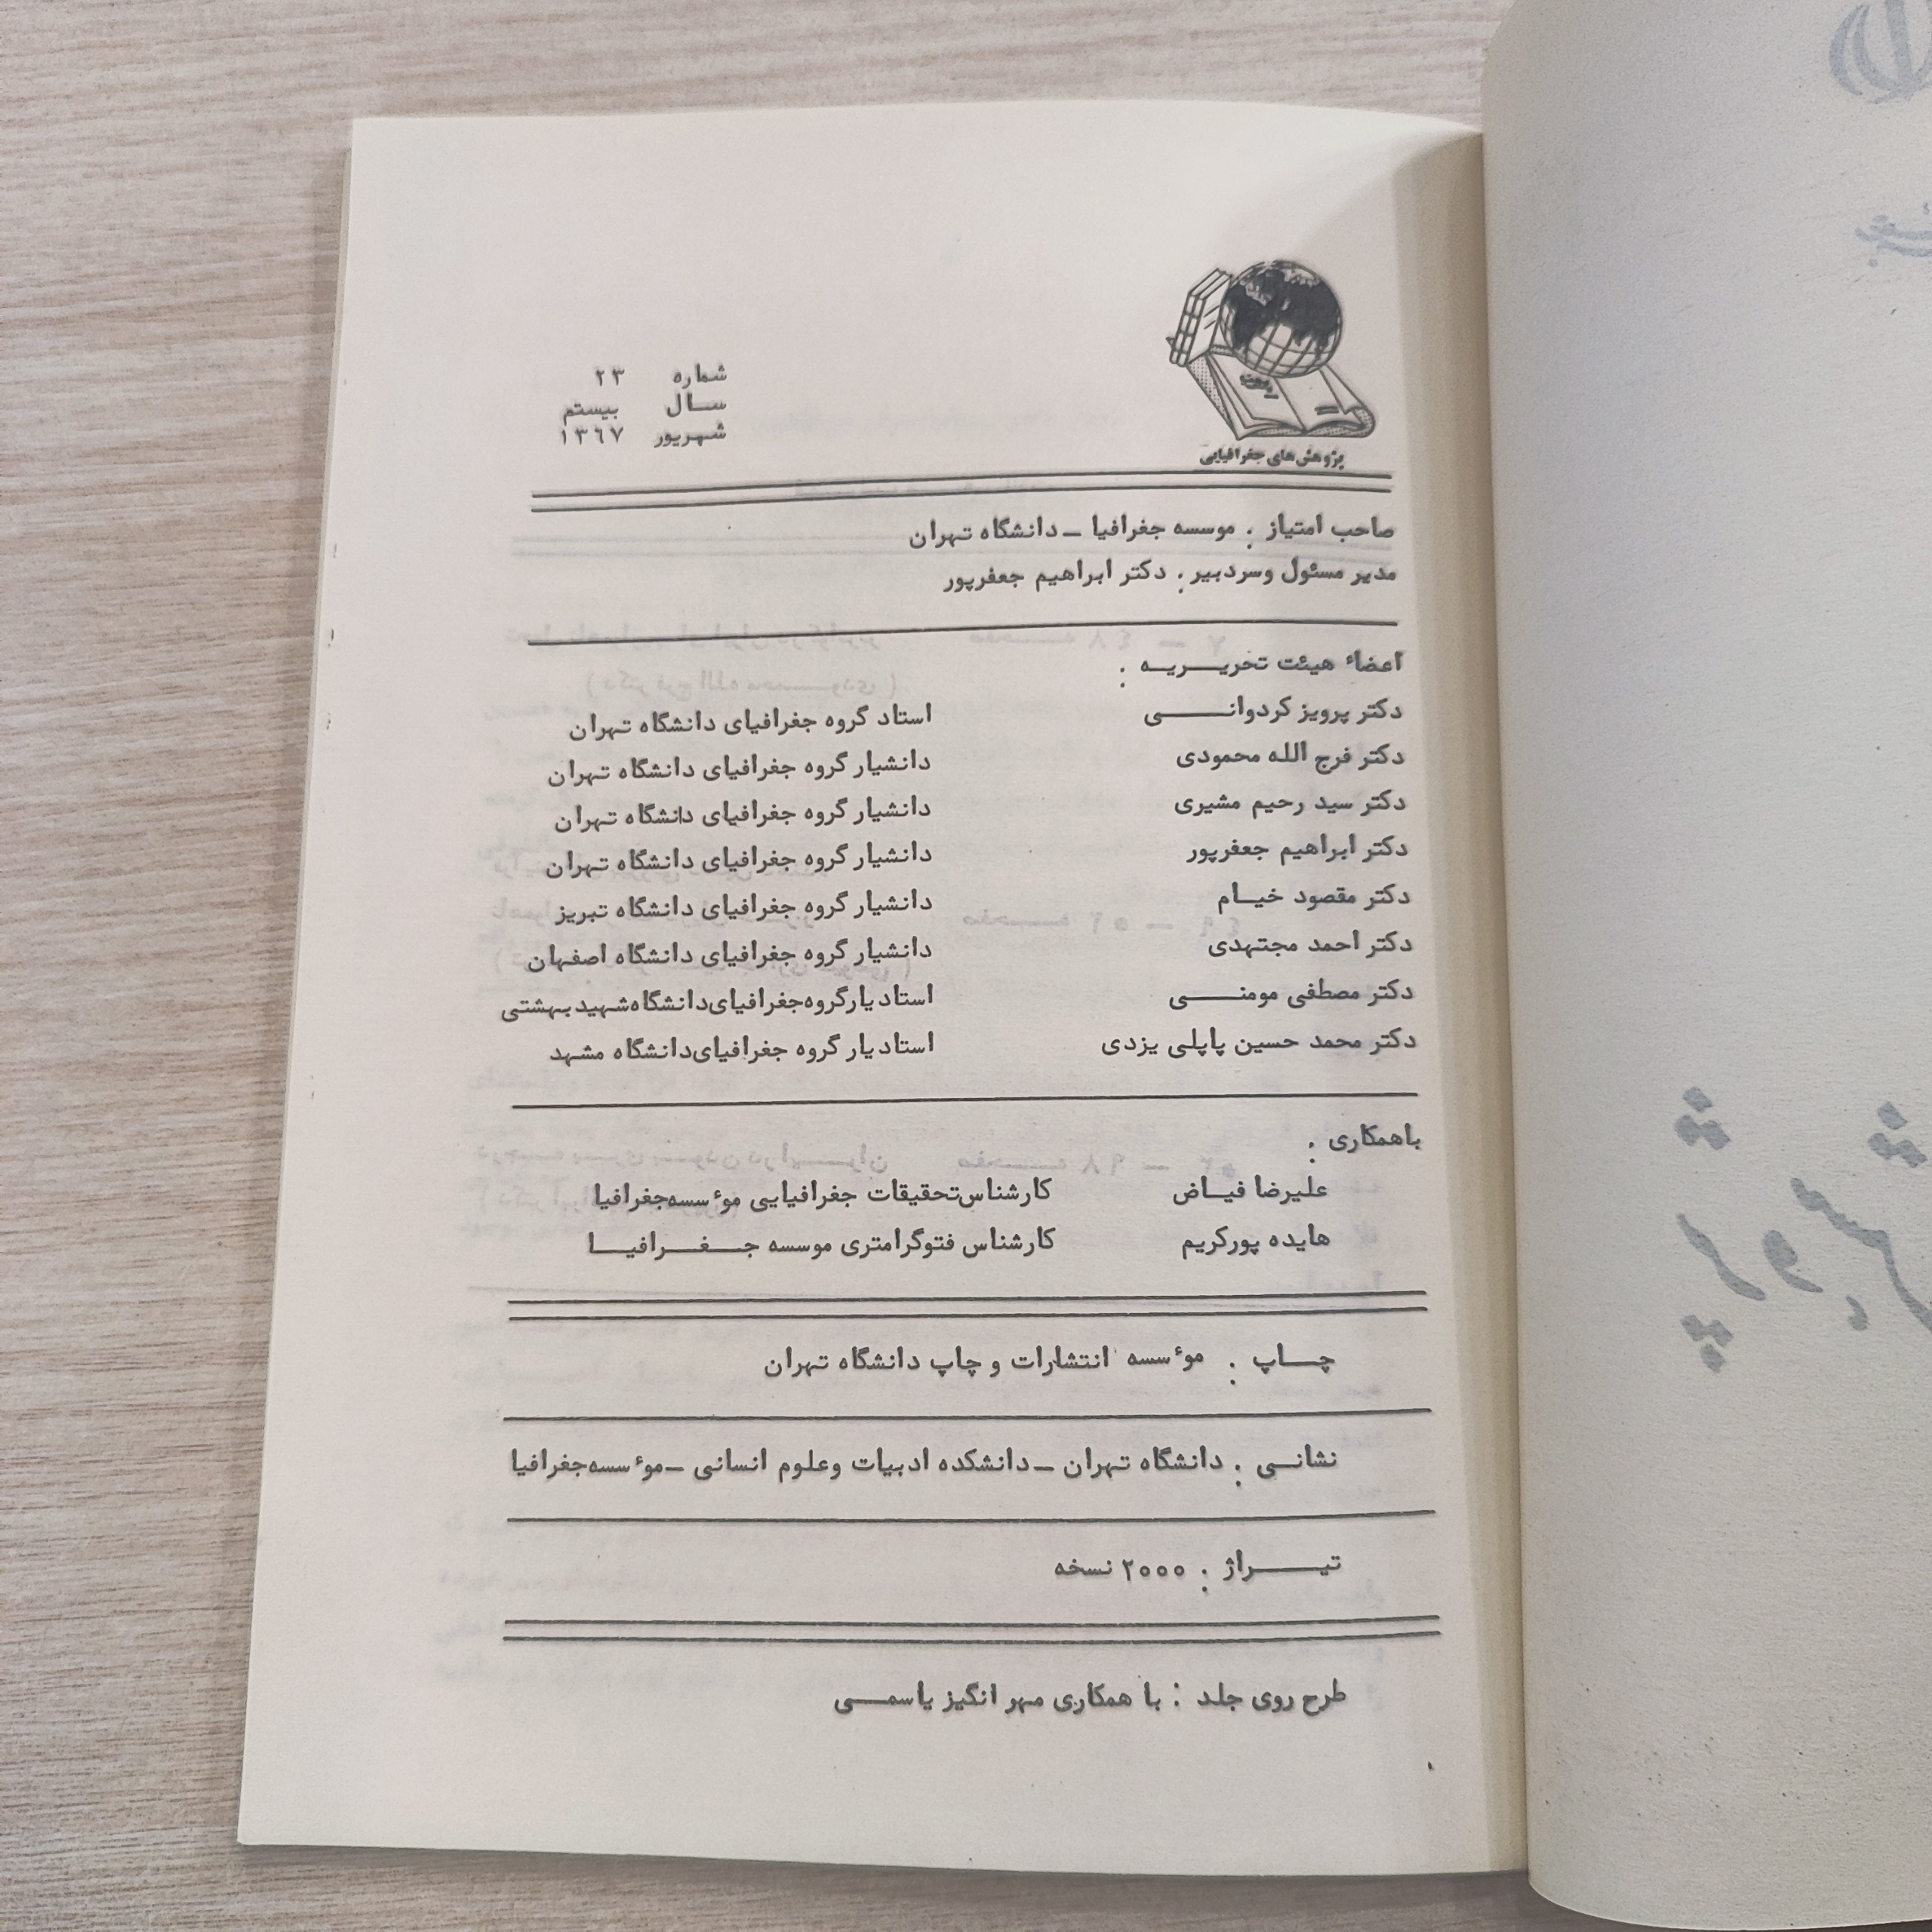 شماره ۲۳
ســال بیستم
شهریور ۱۳٦۷
پژوهش‌های جغرافیایی
صاحب امتیاز : موسسه جغرافیا ــ دانشگاه تهران
مدیر مسئول وسردبیر : دکتر ابراهیم جعفرپور
اعضاء هیئت تحریــریــه :
دکتر پرویز کردوانــــی استاد گروه جغرافیای دانشگاه تهران
دکتر فرج الله محمودی دانشیار گروه جغرافیای دانشگاه تهران
دکتر سید رحیم مشیری دانشیار گروه جغرافیای دانشگاه تهران
دکتر ابراهیم جعفرپور دانشیار گروه جغرافیای دانشگاه تهران
دکتر مقصود خیـام دانشیار گروه جغرافیای دانشگاه تبریز
دکتر احمد مجتهدی دانشیار گروه جغرافیای دانشگاه اصفهان
دکتر مصطفی مومنـــی استادیارگروه‌جغرافیای‌دانشگاه‌شهیدبهشتی
دکتر محمد حسین پاپلی یزدی استادیار گروه جغرافیای‌دانشگاه مشهد
باهمکاری :
علیرضا فیــاض کارشناس‌تحقیقات جغرافیایی موٴسسه‌جغرافیا
هایده پورکریم کارشناس فتوگرامتری موسسه جــغــرافیــا
چـــاپ : موٴسسه انتشارات و چاپ دانشگاه تهران
نشانــی : دانشگاه تهران ــ دانشکده ادبیات وعلوم انسانی ــ موٴسسه‌جغرافیا
تیــــراژ : ۲۰۰۰ نسخه
طرح روی جلد : با همکاری مهر انگیز یاسمــی